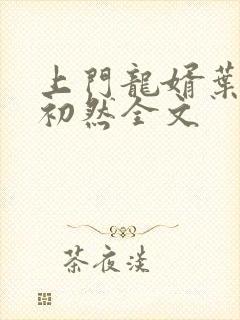 上門龍婿葉
初然全文
茶夜淡